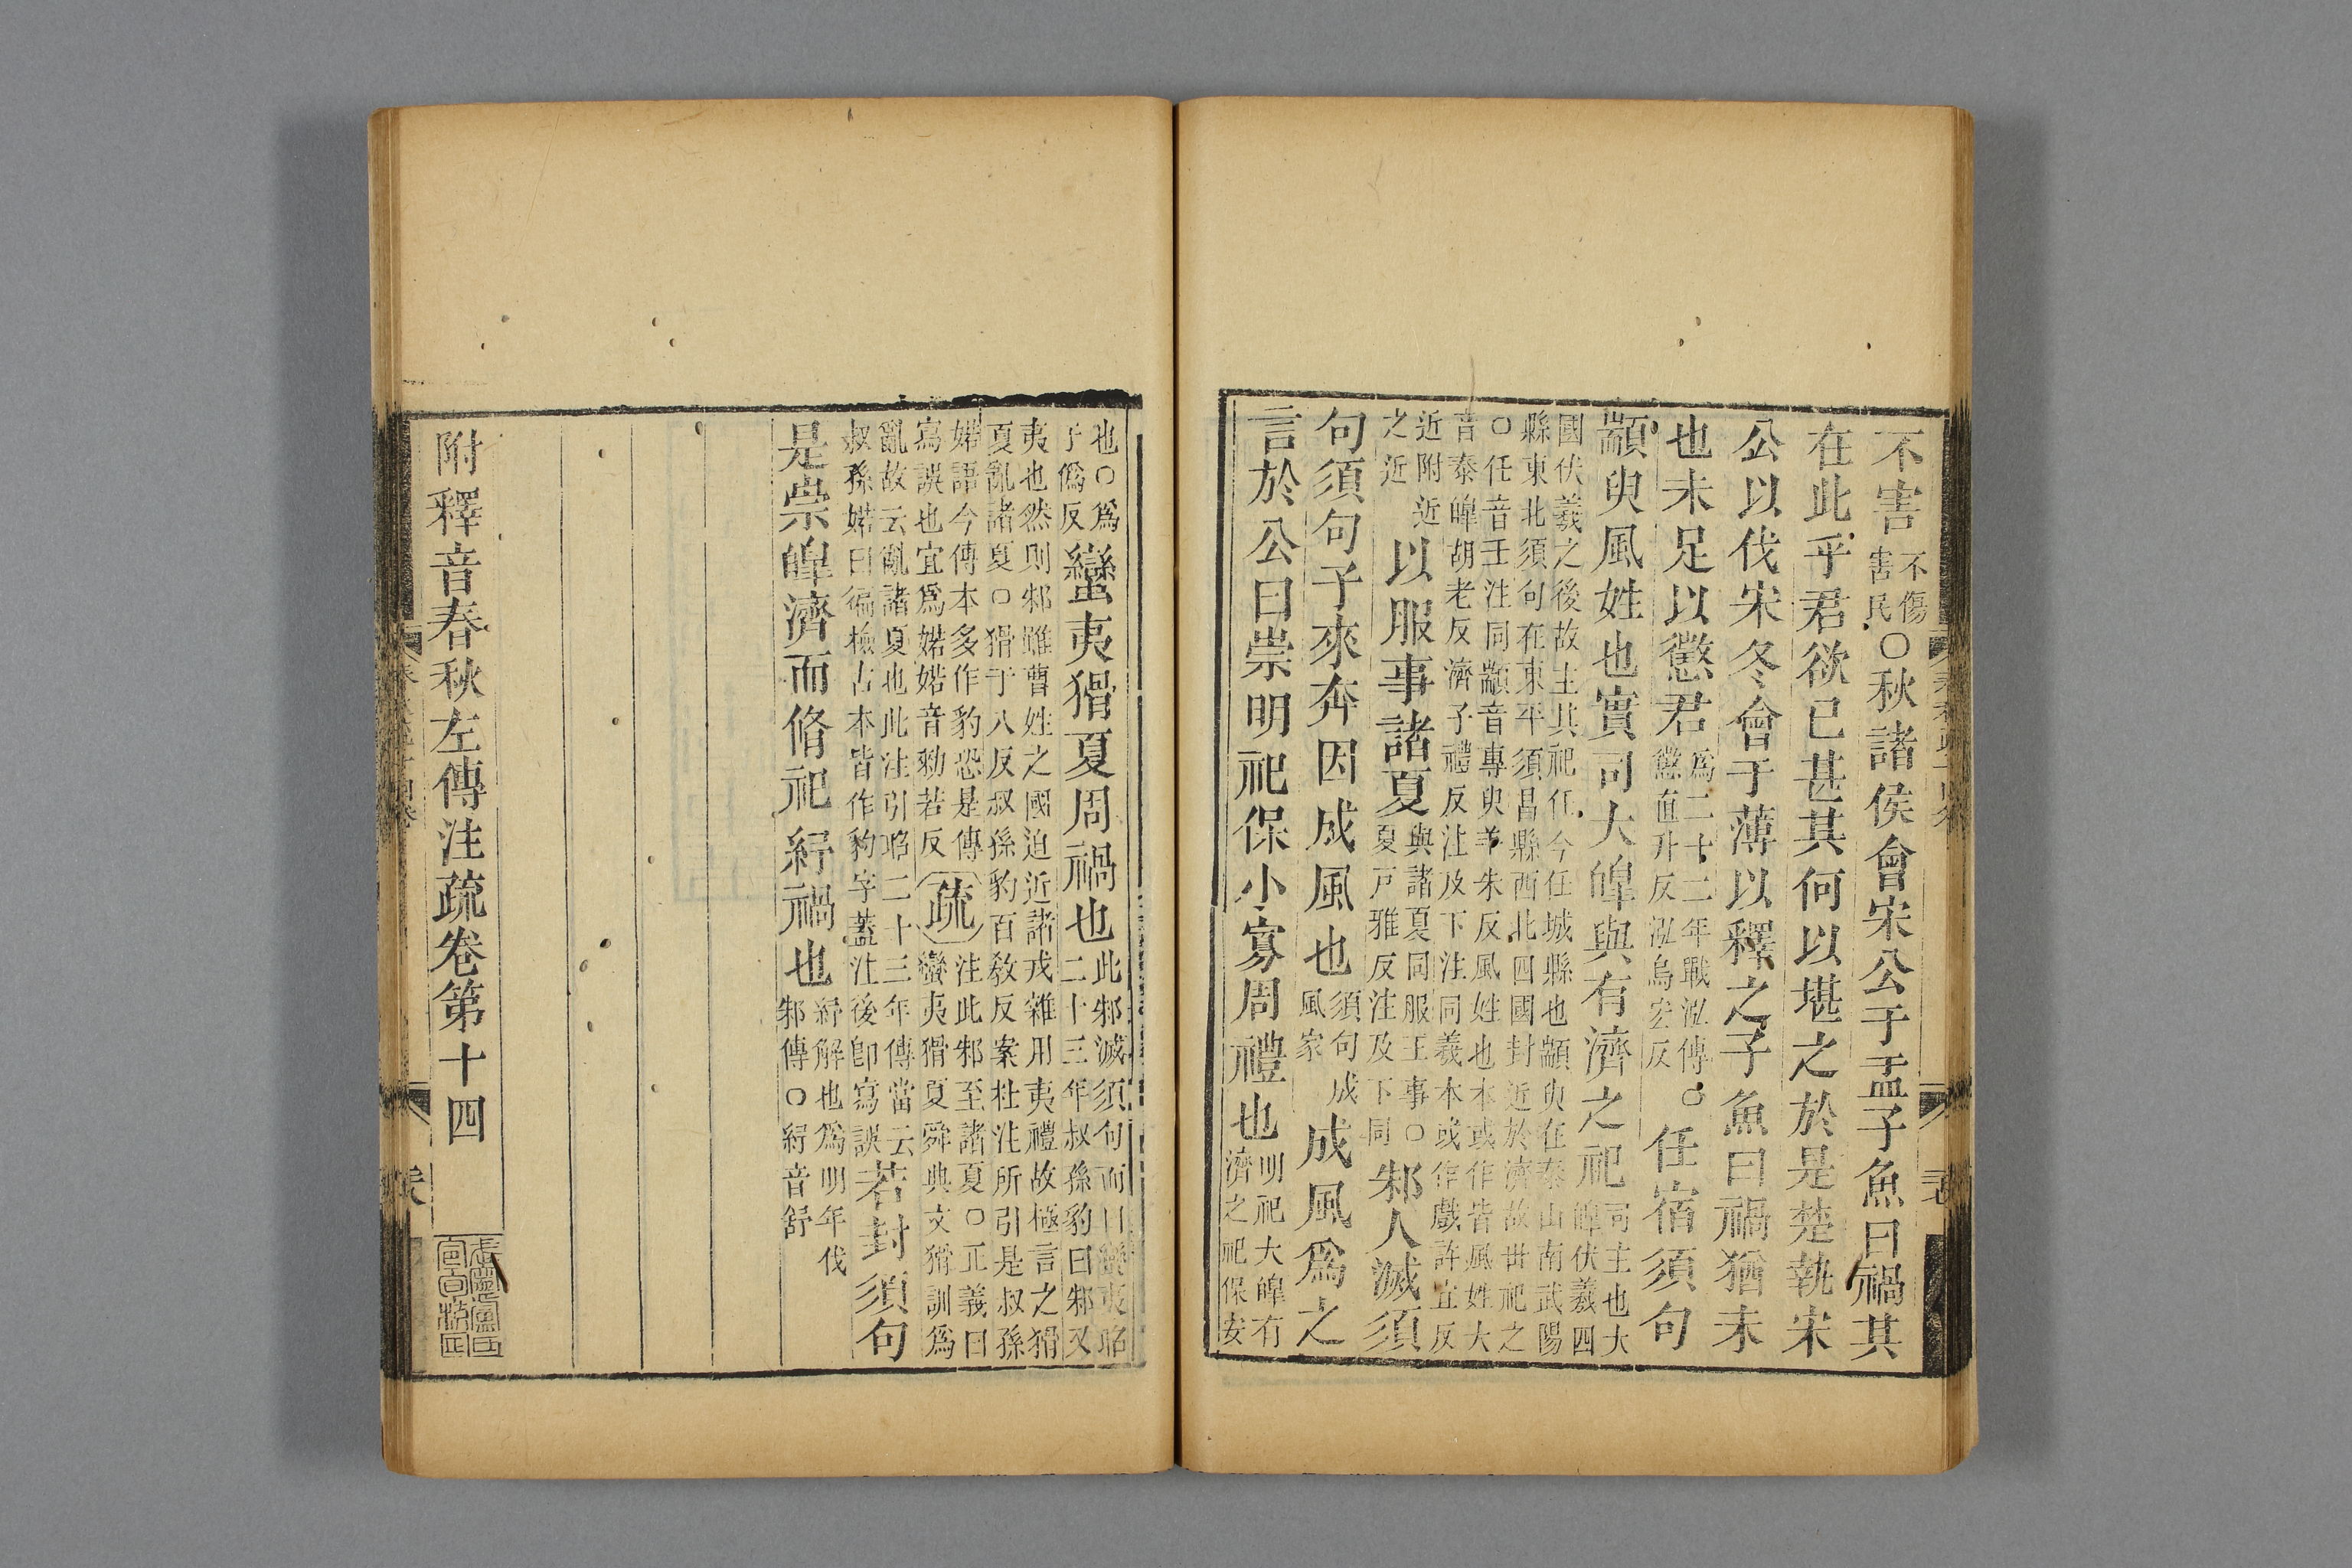 不害不傷害民○秋諸侯會宋公于盂子魚曰禍其
在此乎君欲已甚其何以堪之於是楚執宋
公以伐宋冬會于薄以釋之子魚曰禍猶未
也未足以懲君爲二十二年戰泓傳○懲直升反泓烏宏反任宿須句
顓臾風姓也實司大皥與有濟之祀司主也大皥伏羲四
國伏羲之後故主其祀任今任城縣也顓臾在泰山南武陽
縣東北須句在東平須昌縣西北四國封近於濟故世祀之
○任音壬注同顓音專臾羊朱反風姓也本或作皆風姓大
音泰皥胡老反濟子禮反注及下注同羲本或作戲許宜反
近附近之近以服事諸夏與諸夏同服王事○夏戸雅反注及下同邾人滅須
句須句子來奔因成風也須句成風家成風爲之
言於公曰崇明祀保小寡周禮也明祀大皥有濟之祀保安
也○爲于僞反蠻夷猾夏周禍也此邾滅須句而曰蠻夷昭二十三年叔孫豹曰邾又
夷也然則邾雖曹姓之國迫近諸戎雜用夷禮故極言之猾
夏亂諸夏○猾于八反叔孫豹百敎反案杜注所引是叔孫
婼語今傳本多作豹恐是傳寫誤也宜爲婼婼音勑若反疏注此邾至諸夏○正義曰蠻夷猾夏舜典文猾訓爲
亂故云亂諸夏也此注引昭二十三年傳當云叔孫婼曰徧檢古本皆作豹字蓋注後卽寫誤若封須句
是崇皥濟而脩祀紓禍也紓解也爲明年伐邾傳○紓音舒
附釋音春秋左傳注疏卷第十四